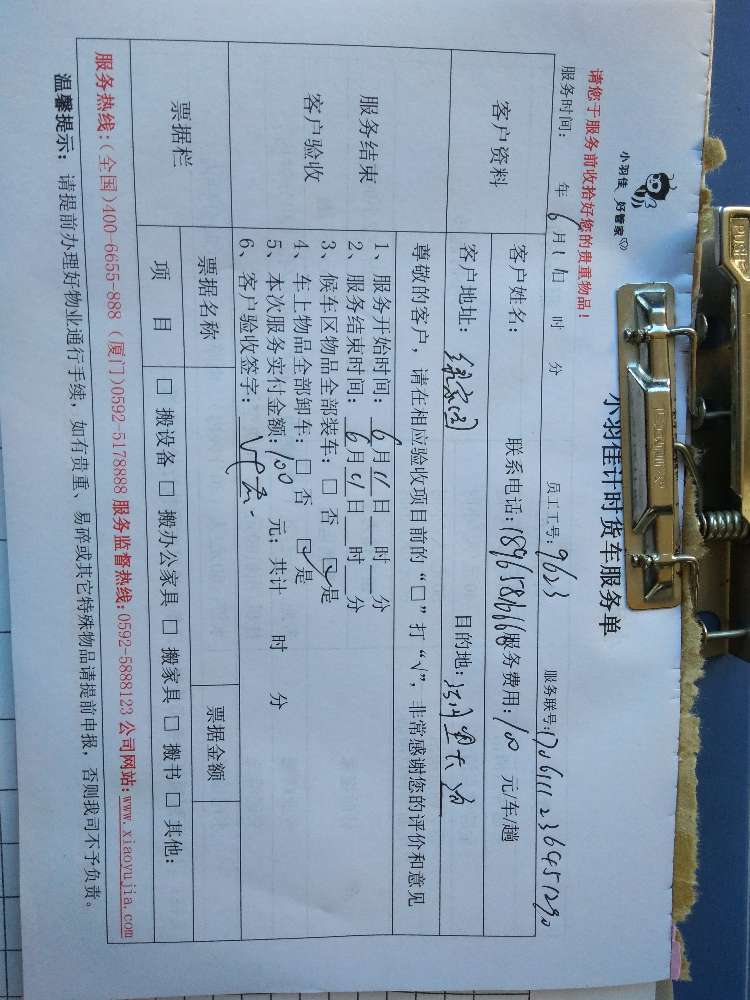 小羽佳 好管家
小羽佳计时货车服务单
请您于服务前收拾好您的贵重物品!
服务时间: 年 6月11日 时 分 员工工号: 9623 服务联号:
客户资料
客户姓名: 联系电话: 服务费用: 100 元/车/趟
客户地址: 目的地:
尊敬的客户, 请在相应验收项目前的“□”打“√”, 非常感谢您的评价和意见
服务结束
客户验收
1、服务开始时间: 6月11日 时 分
2、服务结束时间: 6月 日 时 分
3、候车区物品全部装车: □ 否 ☑ 是
4、车上物品全部卸车: □ 否 ☑ 是
5、本次服务实付金额: 100 元; 共计 时 分
6、客户验收签字:
票据栏
票据名称 票据金额
项 目 □ 搬设备 □ 搬办公家具 □ 搬家具 □ 搬书 □ 其他:
服务热线:(全国)400-6655-888 (厦门)0592-5178888 服务监督热线:0592-5888123 公司网站:www.xiaoyujia.com
温馨提示: 请提前办理好物业通行手续, 如有贵重、易碎或其它特殊物品请提前申报, 否则我司不予负责。